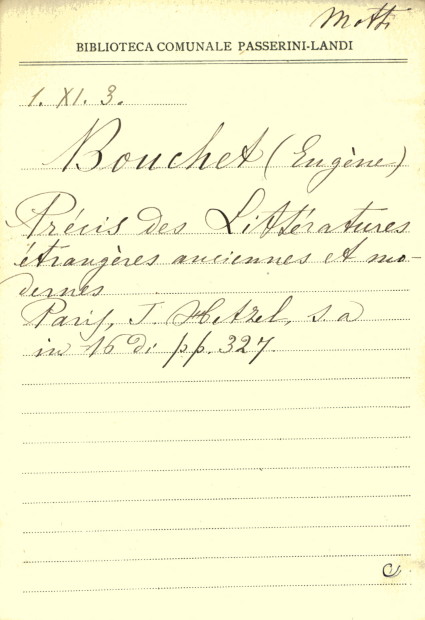 Motti
BIBLIOTECA COMUNALE PASSERINI-LANDI
1. XI. 3.
Bouchet (Eugène)
Précis des Littératures
étrangères anciennes et mo-
dernes
Paris, J. Hetzel, s. a
in 16° di pp. 327.
C